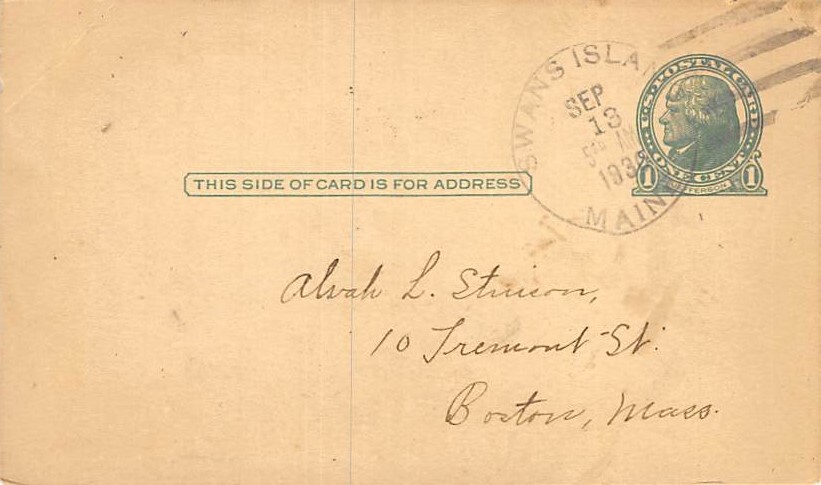 SWANS ISLAN
SEP
13
MAIN
U.S. POSTAL CARD
ONE CENT
1 JEFFERSON 1
THIS SIDE OF CARD IS FOR ADDRESS
Alvah L. Stinson,
10 Tremont St.
Boston, Mass.